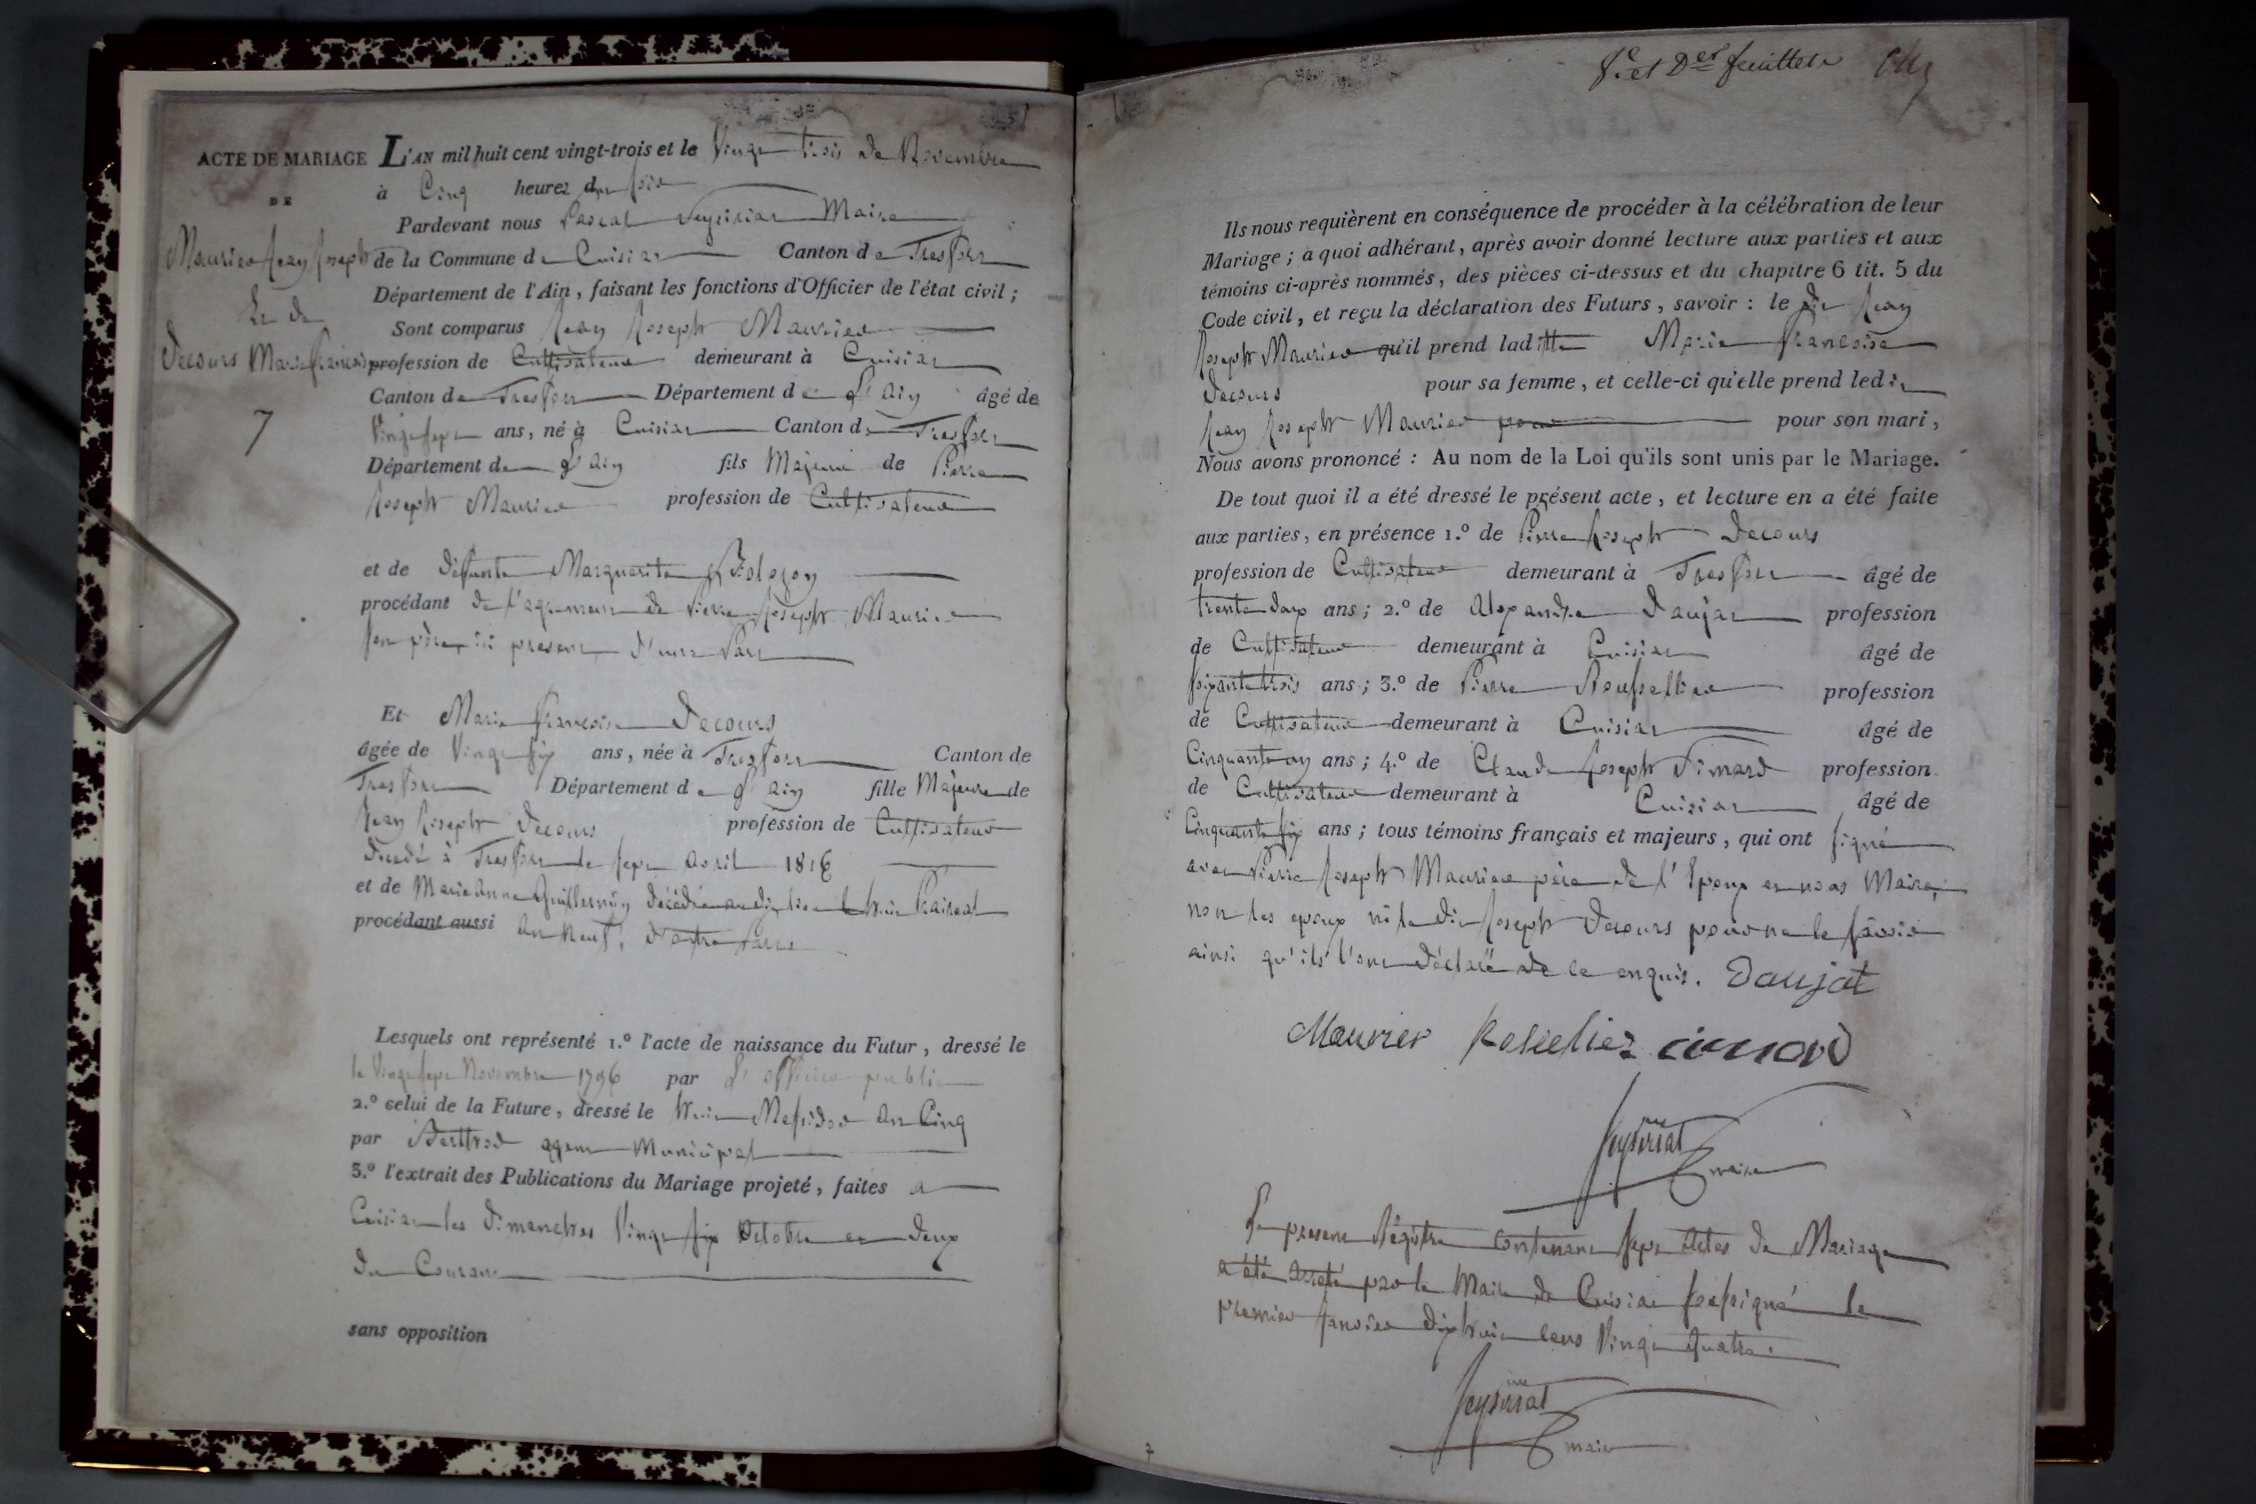 ACTE DE MARIAGE
DE
Maurier Jean Joseph
Et De
Decours Marie francoise
7
L'AN mil huit cent vingt-trois et le Vingt trois de Novembre
à Cinq heures du soir
Pardevant nous Pascal Veysiriat Maire
de la Commune de Cuisiat Canton de Treffort
Département de l'Ain, faisant les fonctions d'Officier de l'état civil;
Sont comparus Jean Joseph Maurier
profession de Cultivateur demeurant à Cuisiat
Canton de Treffort Département de L'ain âgé de
Vingt sept ans, né à Cuisiat Canton de Treffort
Département de L'ain fils Majeur de Pierre
Joseph Maurier profession de Cultivateur
et de deffunte Marguerite
procédant de l'agrement de Pierre Joseph Maurier
son père ici present d'une Part
Et Marie francoise Decours
âgée de Vingt six ans, née à Treffort Canton de
Treffort Département de L'ain fille Majeure de
Jean Joseph Decours profession de Cultivateur
decedé à Treffort le sept avril 1816
et de Marie Anne Guillermin décédée audit lieu le huit Prairial
procédant aussi an Neuf, d'autre Part
Lesquels ont représenté 1.º l'acte de naissance du Futur, dressé le
le Vingt sept Novembre 1796 par L'officier public
2.º celui de la Future, dressé le huit Messidor an Cinq
par agent Municipal
3.º l'extrait des Publications du Mariage projeté, faites a
Cuisiat les dimanches Vingt six Octobre et deux
du Courant
sans opposition
f.e et Der feuillet
Ils nous requièrent en conséquence de procéder à la célébration de leur
Mariage; à quoi adhérant, après avoir donné lecture aux parties et aux
témoins ci-après nommés, des pièces ci-dessus et du chapitre 6 tit. 5 du
Code civil, et reçu la déclaration des Futurs, savoir: le dit Jean
Joseph Maurier qu'il prend laditte Marie francoise
Decours pour sa femme, et celle-ci qu'elle prend ledit
Jean Joseph Maurier pour pour son mari,
Nous avons prononcé: Au nom de la Loi qu'ils sont unis par le Mariage.
De tout quoi il a été dressé le présent acte, et lecture en a été faite
aux parties, en présence 1.º de Pierre Joseph Decours
profession de Cultivateur demeurant à Treffort âgé de
trente deux ans; 2.º de Alexandre Daujat profession
de Cultivateur demeurant à Cuisiat âgé de
soixante trois ans; 3.º de Pierre Rousseltier profession
de Cultivateur demeurant à Cuisiat âgé de
Cinquante un ans; 4.º de Claude Joseph Simard profession
de Cultivateur demeurant à Cuisiat âgé de
Cinquante six ans; tous témoins français et majeurs, qui ont signé
avec Pierre Joseph Maurier père de l'Epoux et nous Maire,
non les epoux ni le dit Joseph Decours pour ne le savoir
ainsi qu'ils l'ont déclaré de ce enquis. Daujat
Maurier
Veysiriat
maire
Le present Régistre contenant sept Actes de Mariage
a été arreté par le Maire de Cuisiat soussigné le
premier Janvier dix huit cent Vingt quatre.
Veysiriat
maire
7